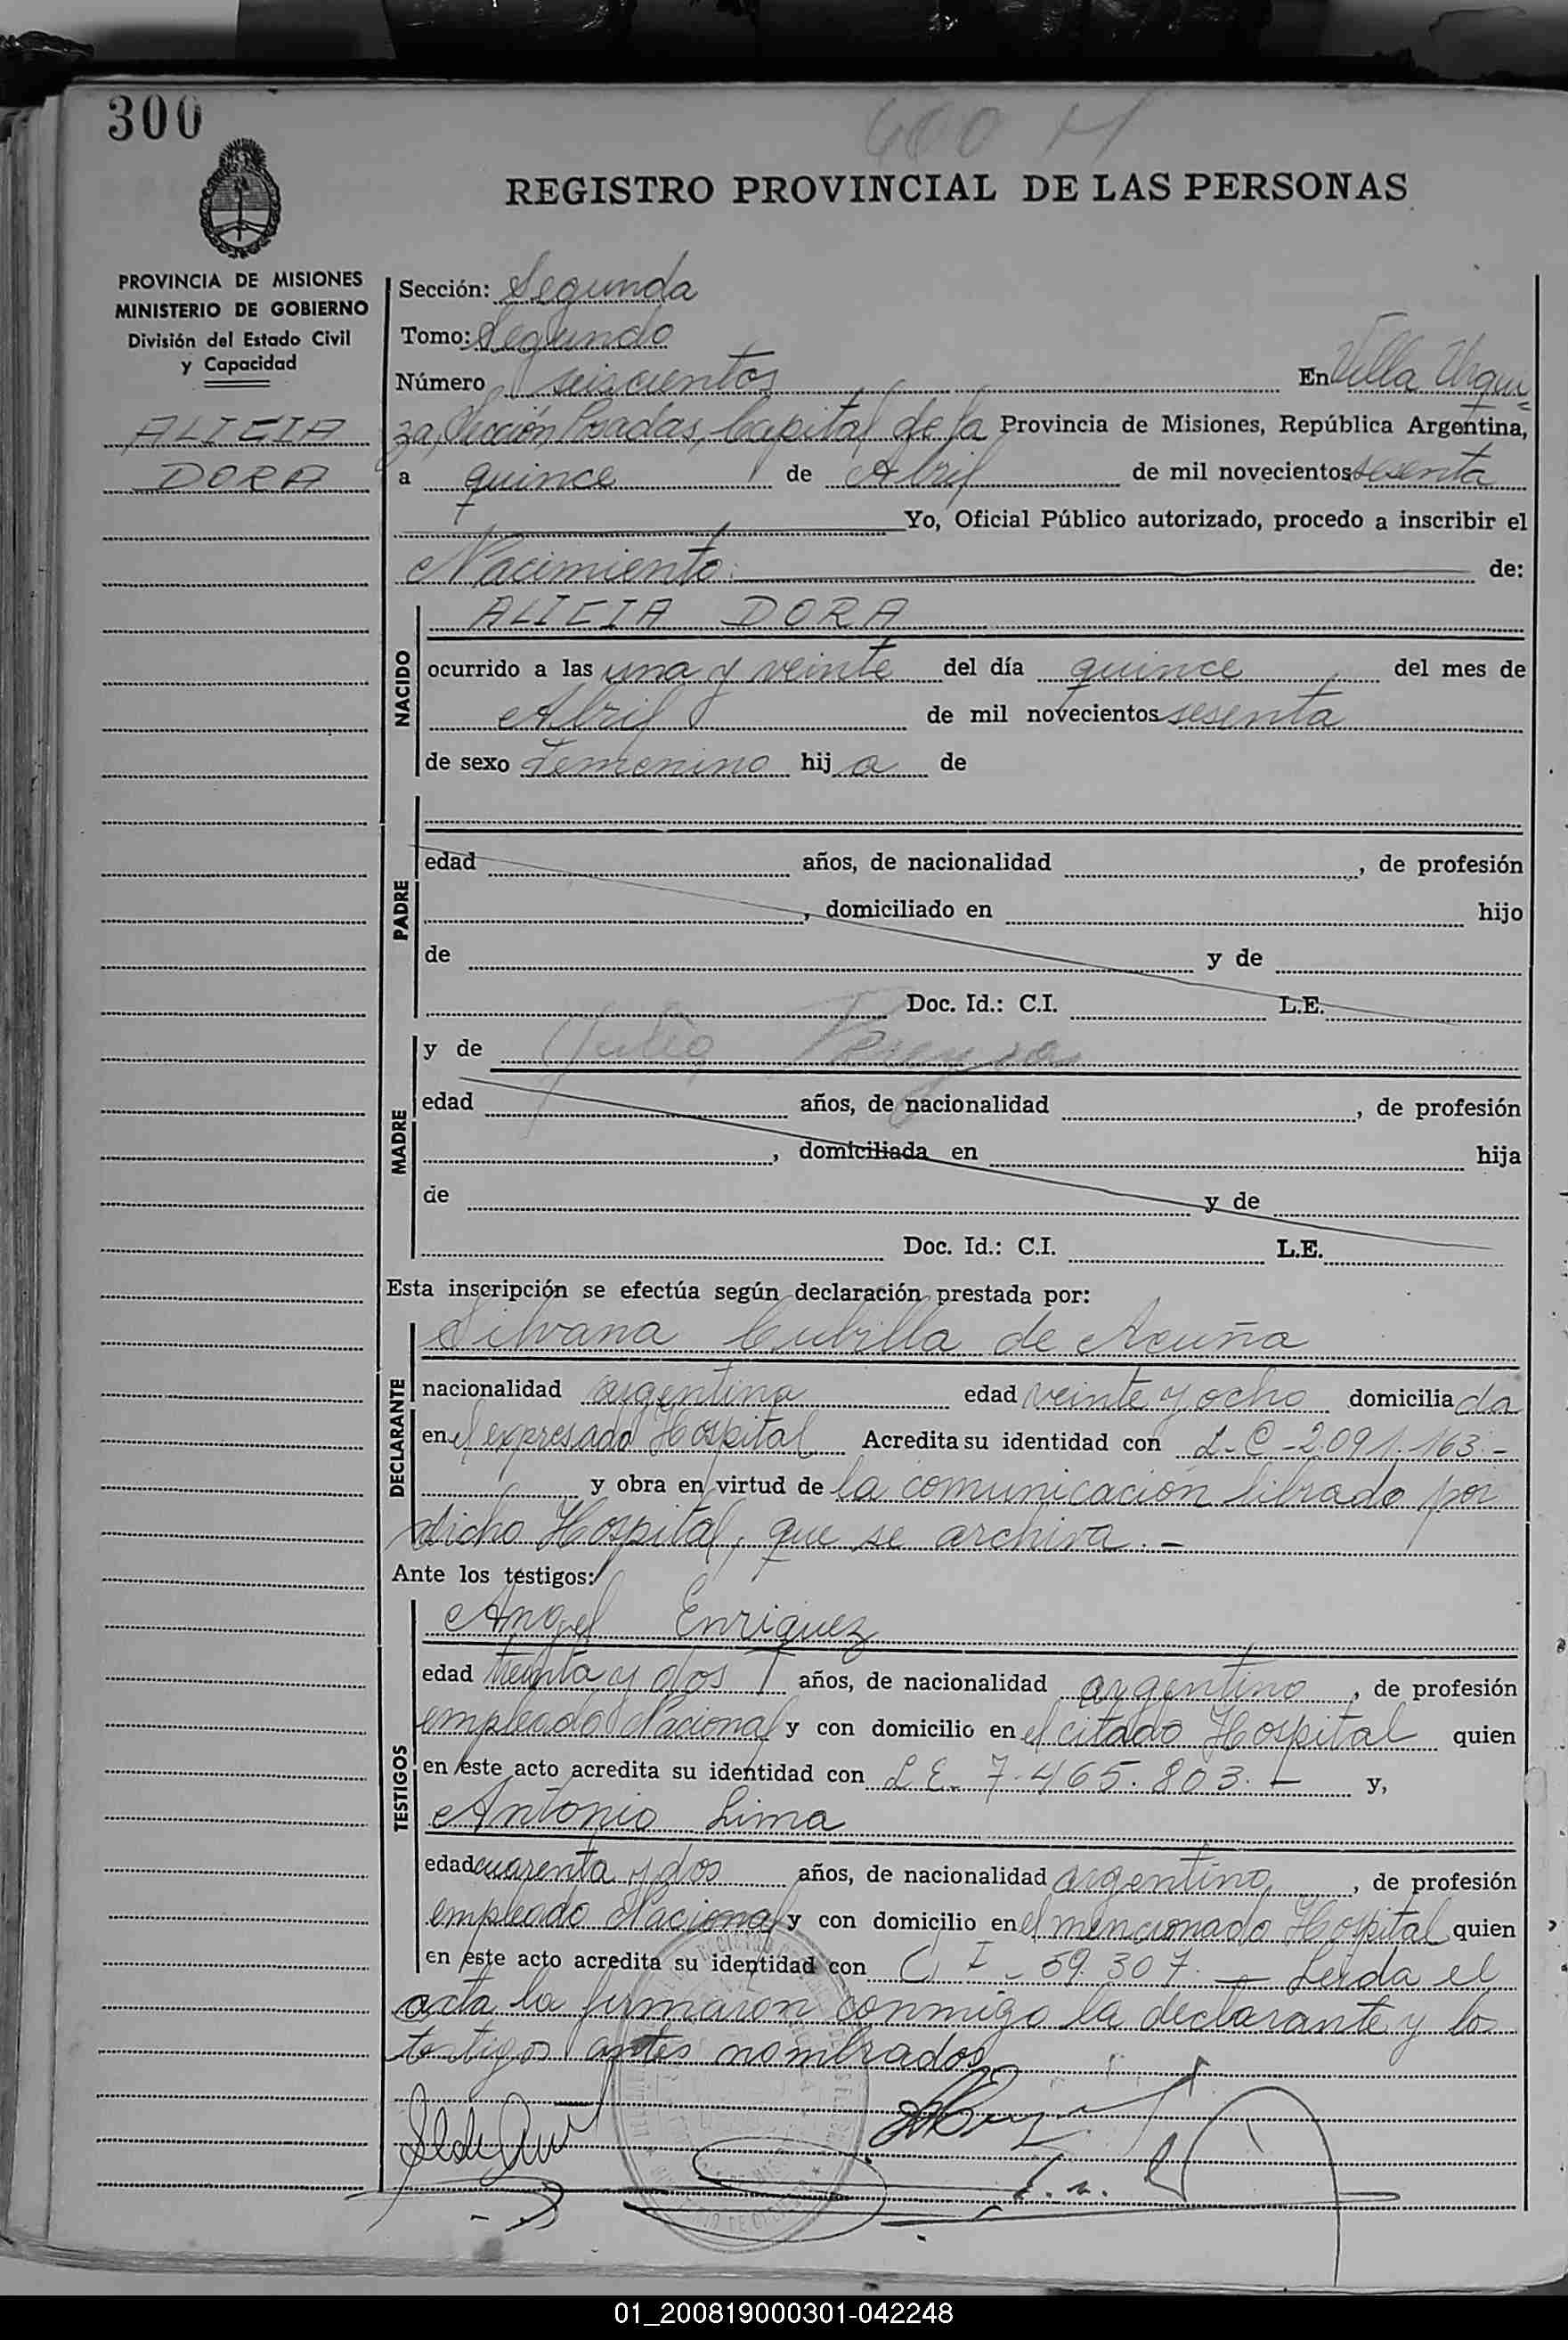 300
600 M
REGISTRO PROVINCIAL DE LAS PERSONAS
PROVINCIA DE MISIONES
MINISTERIO DE GOBIERNO
División del Estado Civil
y Capacidad
ALICIA
DORA
Sección: Segunda
Tomo: Segundo
Número seiscientos En Villa Urqui=
za, Sección Posadas, Capital de la Provincia de Misiones, República Argentina,
a quince de Abril de mil novecientos sesenta
Yo, Oficial Público autorizado, procedo a inscribir el
Nacimiento de:
NACIDO
ALICIA DORA
ocurrido a las una y veinte del día quince del mes de
Abril de mil novecientos sesenta
de sexo Femenino hij a de
PADRE
edad años, de nacionalidad , de profesión
, domiciliado en hijo
de y de
Doc. Id.: C.I. L.E.
MADRE
y de Julia Pereyra
edad años, de nacionalidad , de profesión
, domiciliada en hija
de y de
Doc. Id.: C.I. L.E.
Esta inscripción se efectúa según declaración prestada por:
DECLARANTE
Silvana Cubilla de Acuña
nacionalidad argentina edad veinte y ocho domicilia da
en el expresado Hospital Acredita su identidad con L-C-2.091.163.-
y obra en virtud de la comunicación librada por
dicho Hospital, que se archiva.-
Ante los testigos:
TESTIGOS
Angel Enriquez
edad treinta y dos años, de nacionalidad argentino, de profesión
empleado Nacional y con domicilio en el citado Hospital quien
en este acto acredita su identidad con L E. 7.465.803.- y,
Antonio Lima
edad cuarenta y dos años, de nacionalidad argentino, de profesión
empleado Nacional y con domicilio en el mencionado Hospital quien
en este acto acredita su identidad con C I - 59.307.- Leida el
acta la firmaron conmigo la declarante y los
testigos antes nombrados
01_200819000301-042248